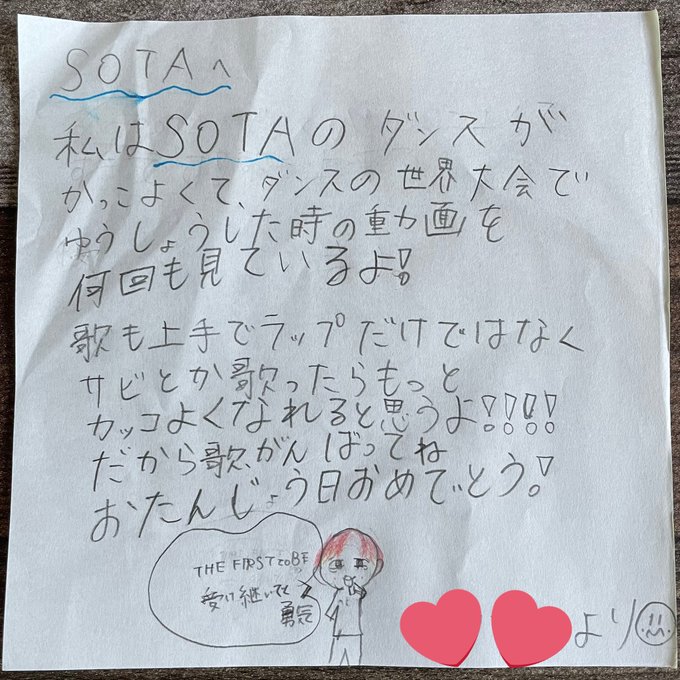 SOTAへ
私はSOTAのダンスが
かっこよくて、ダンスの世界大会で
ゆうしょうした時の動画を
何回も見ているよ!
歌も上手でラップだけではなく
サビとか歌ったらもっと
カッコよくなれると思うよ!!!!
だから歌、がんばってね
おたんじょう日おめでとう!
THE FIRST TO BE
受け継いでく
勇気
より